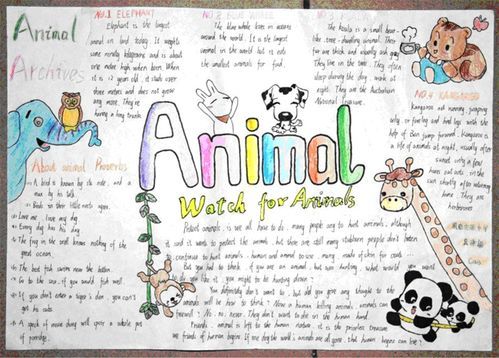 Animal
Archives
NO.1 ELEPHANT
Elephant is the largest
animal on land today. It weighs
some and is about
one meter high when born. When
it is 12 year old, it
three meters and does not grow
any more. They're
having a long trunk.
The blue whale lives in oceans
around the world. It is the largest
animal in the world but it eats
the smallest animals for food.
The koala is a small bear-
like, tree-dwelling animal. They
fur are thick and usually ash gray.
They live in the tree. They often
sleep during the day, wake at
night. They are the Australian
National treasure.
NO.4 KANGAROO
Kangaroo not running jumping
only on foreleg and hind legs with the
help of San jump forward. Kangaroo is
a life of animals at night, usually often
sunset only in few
hours out eats in the
sun shortly after returning
home. They are
herbivores
About animal Proverbs
A bird is known by its note, and a
man by his talk.
Birds in their little nests agree.
Love me, love my dog
Every dog has his day.
The frog in the well knows nothing of the
great ocean.
The best fish swims near the bottom.
Go to the sea, if you would fish well.
If you don't enter a tiger's den, you can't
get his cubs.
A speck of mouse dung will spoil a whole pot
of porridge.
Animal
Watch for Animals
Protect animals is we all have to do, many people say to hurt animals, although
it and it want to protect the animals, but there are still many stubborn people don't listen,
continue to hurt animals, human and animal to use, many made of skin for coats...
But you had to think, if you are an animal, but was hunting, what would you want
to do like it, you might to be hunting down?
You definitely don't want to, but did you give any thought to the
animals will be how to think? Now a human killing animals, animals can
farewell? No, no, never. They don't want to die in the human hand.
Friends, animal is left to the human nature, it is the priceless treasure
we friends of human begins. If one day the world's animals are all gone, that human begins can live?